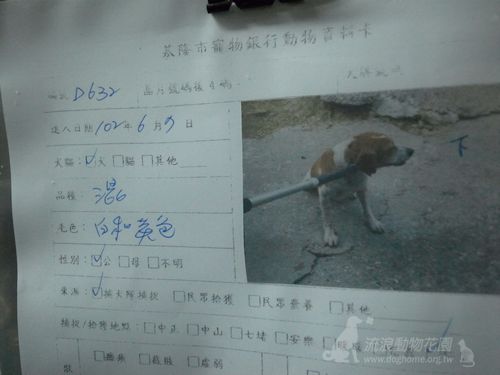 基隆市寵物銀行動物資料卡
D632 晶片號碼後
送入日期:102年6月9日
犬貓:☑犬 □貓 □其他
品種:混
毛色:白和黃色
下
性別:☑公 □母 □不明
來源:☑捕犬隊捕捉 □民眾拾獲 □民眾棄養 □其他
捕捉/拾獲地點:□中正 □中山 □七堵 □安樂 □暖暖
狀 □ □ □虛弱
流浪動物花園
www.doghome.org.tw